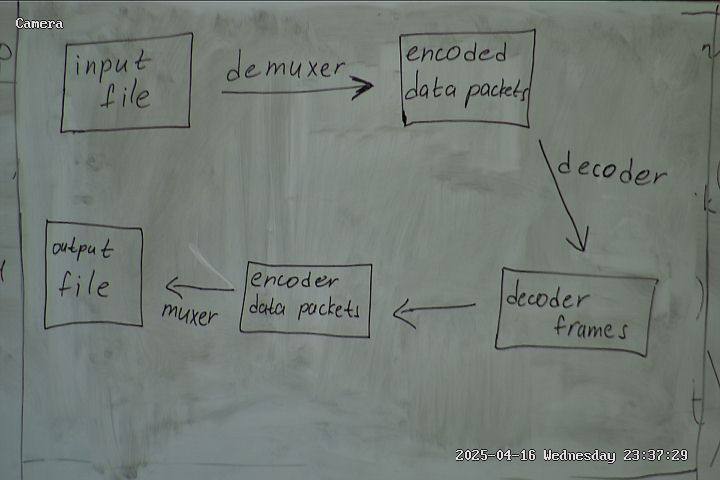 Camera
input
file
demuxer
encoded
data packets
decoder
decoder
frames
encoder
data packets
muxer
output
file
2025-04-16 Wednesday 23:37:29